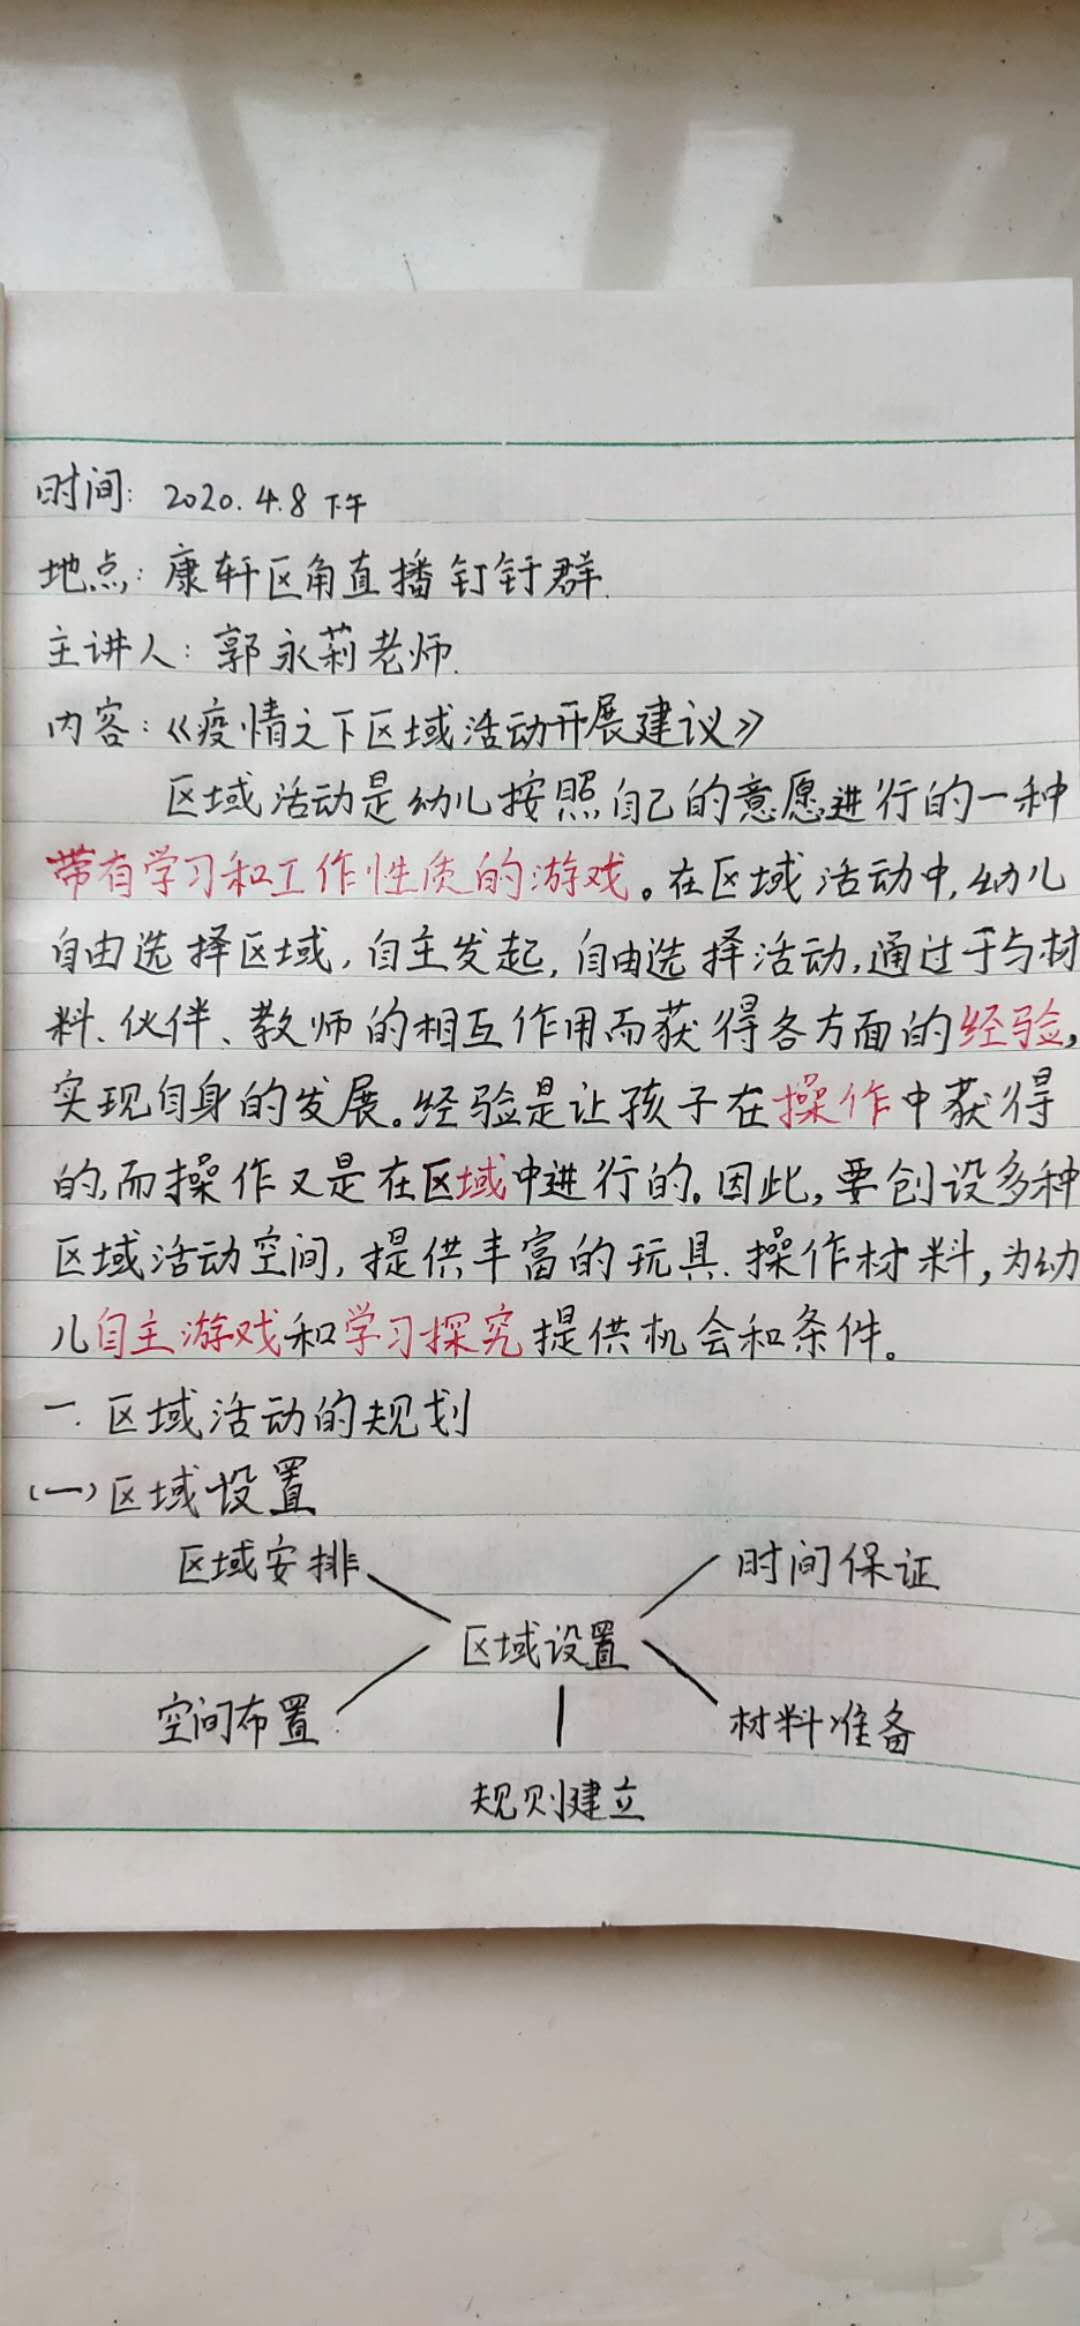 时间: 2020.4.8 下午
地点: 康轩区角直播钉钉群.
主讲人: 郭永莉老师.
内容:《疫情之下区域活动开展建议》
区域活动是幼儿按照自己的意愿进行的一种
带有学习和工作性质的游戏。在区域活动中,幼儿
自由选择区域,自主发起,自由选择活动,通过于与材
料、伙伴、教师的相互作用而获得各方面的经验,
实现自身的发展。经验是让孩子在操作中获得
的,而操作又是在区域中进行的。因此,要创设多种
区域活动空间,提供丰富的玩具、操作材料,为幼
儿自主游戏和学习探究提供机会和条件。
一.区域活动的规划
(一)区域设置
区域安排 时间保证
区域设置
空间布置 材料准备
规则建立